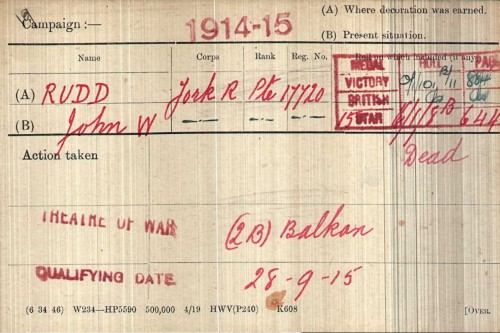 Campaign :— 1914-15 (A) Where decoration was earned.
(B) Present situation.
Name Corps Rank Reg. No. Roll on which included (if any)
MEDAL ROLL PAGE
(A) RUDD York R Pte 17720 VICTORY
(B) John W — — — BRITISH
15 STAR 644
Action taken Dead
THEATRE OF WAR (2B) Balkan
QUALIFYING DATE 28-9-15
(6 34 46) W234—HP5590 500,000 4/19 HWV(P240) K608 [OVER.